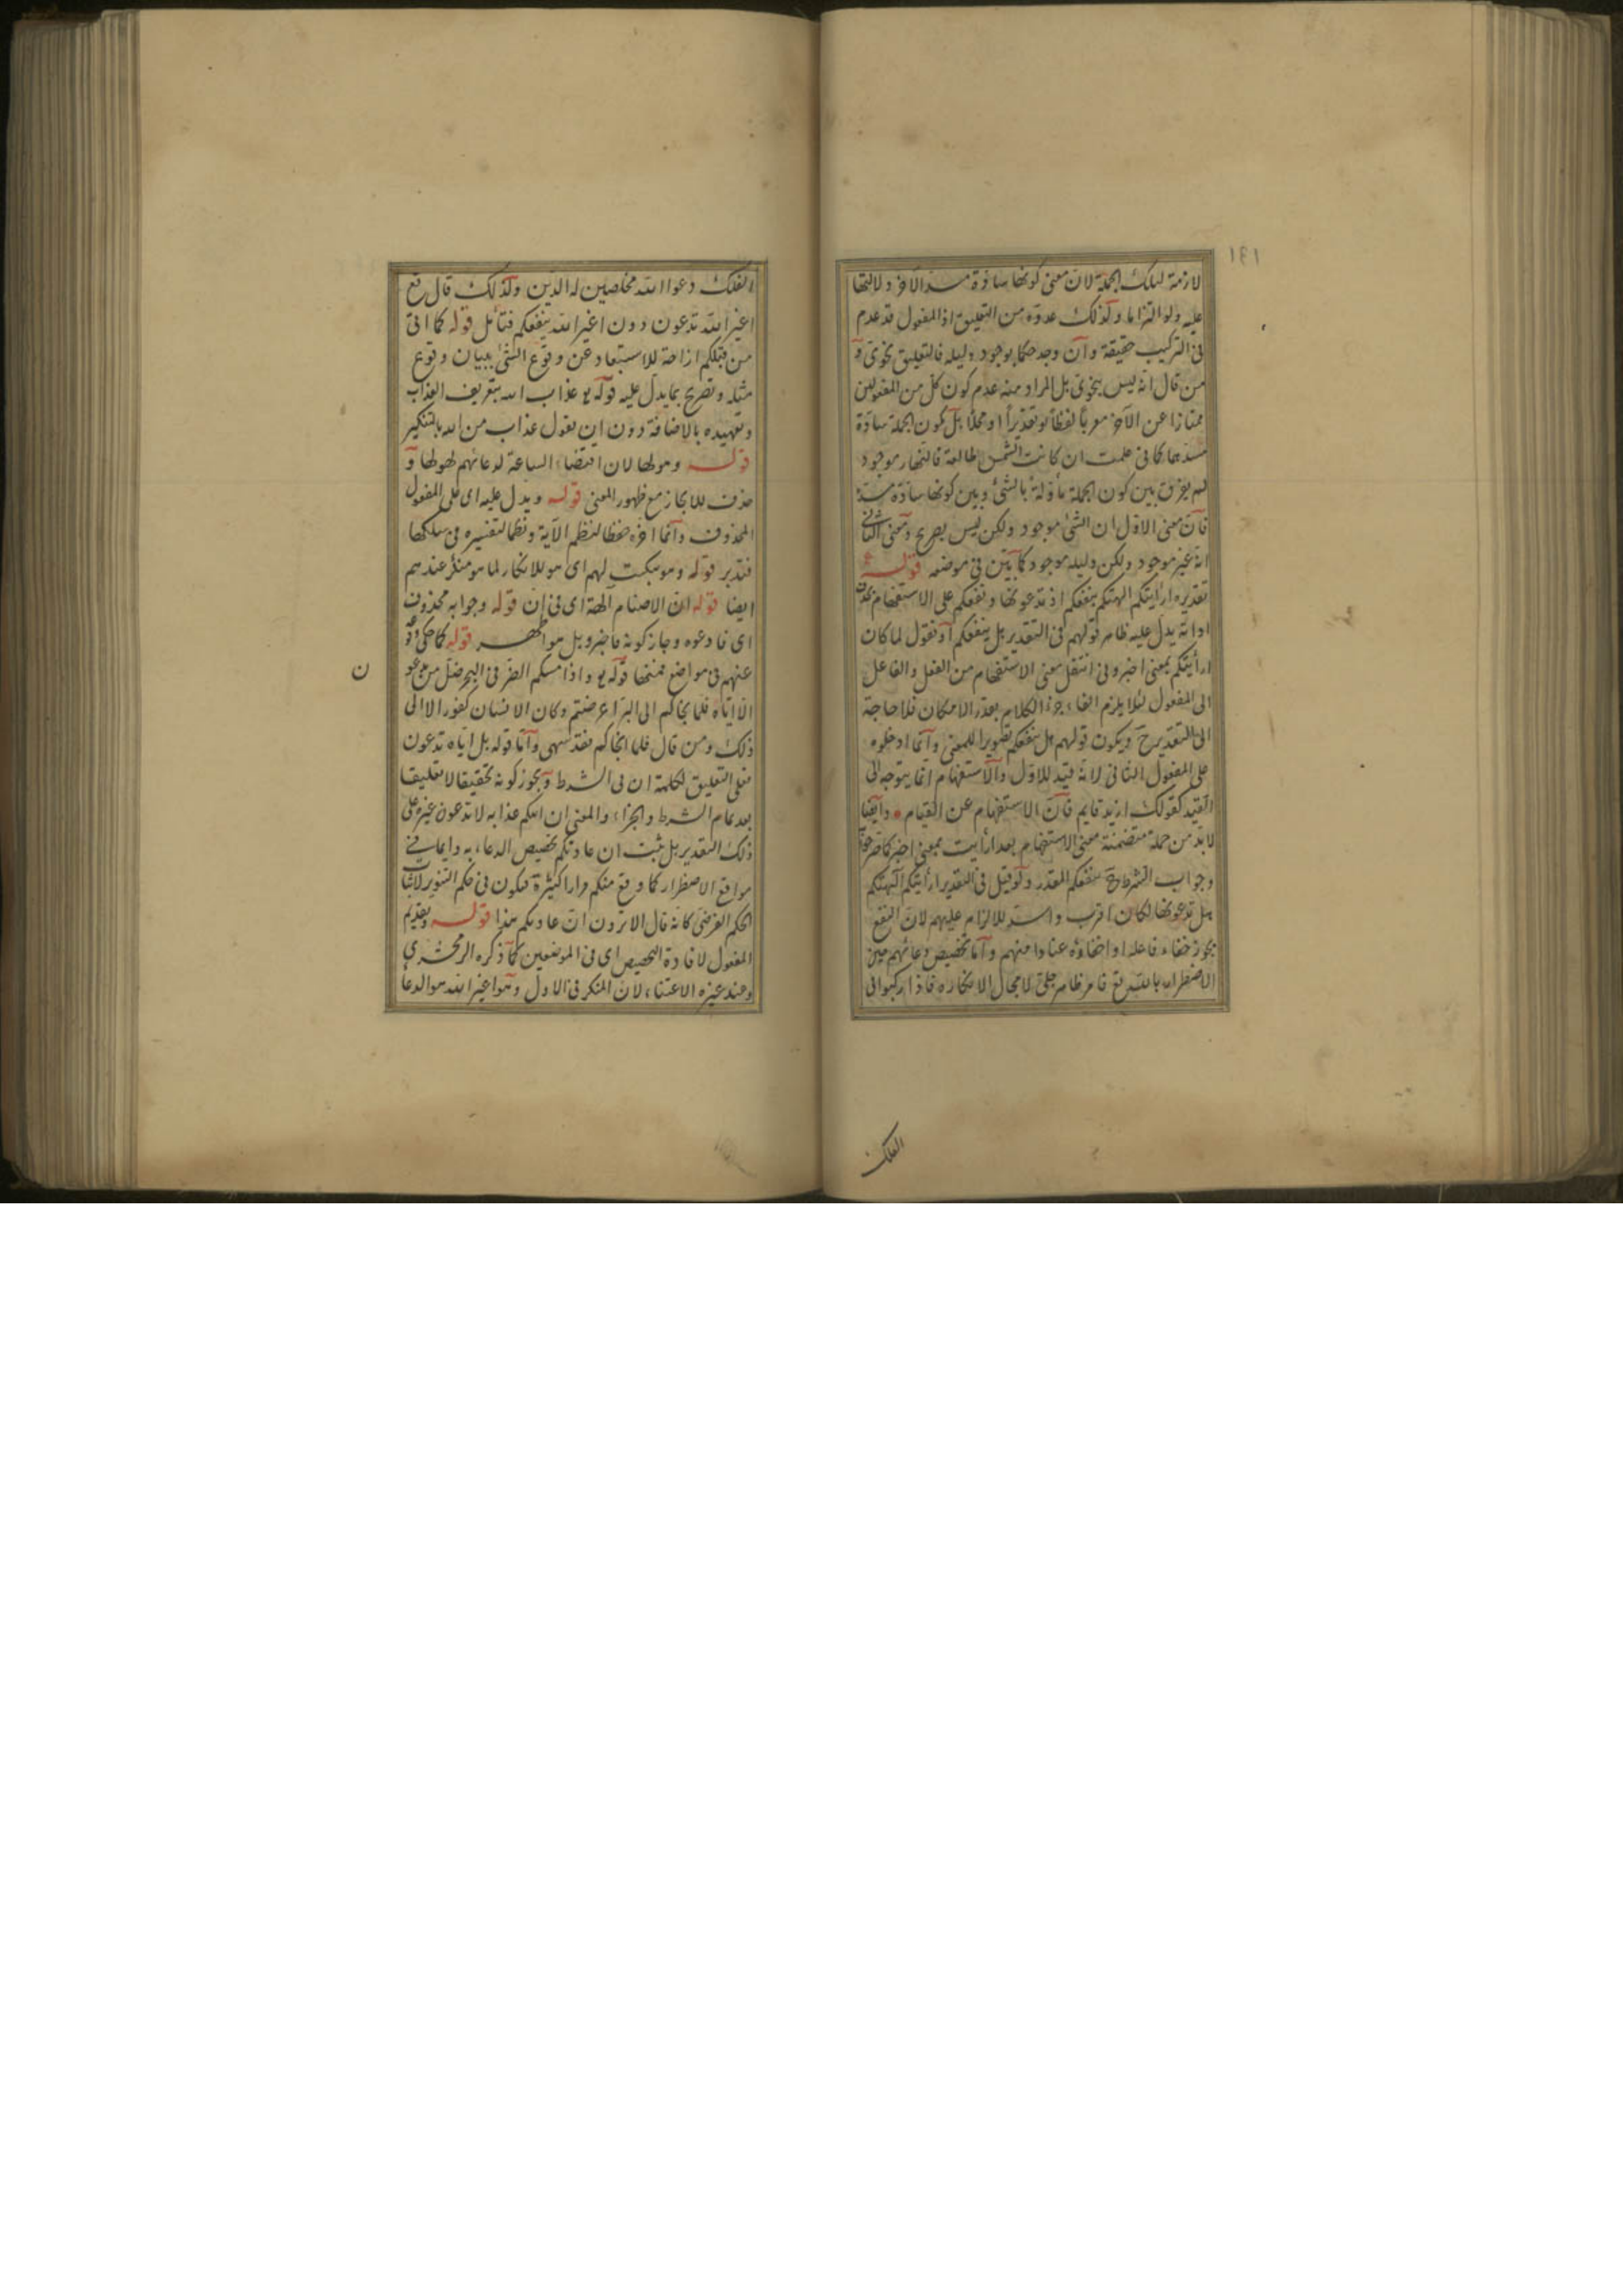 ١٤١
لازمة لتلك الجملة لان معنى كونها سادّة مسدّ الآخر دلالتها
عليه ولو التزاما ولذلك عدّوه من التعليق اذ المفعول قد عدم
فى التركيب حقيقة وان وجد حكما بوجود دليله فالتعليق نحوىّ و
من قال انه ليس بنحوىّ بل المراد منه عدم كون كلّ من المفعولين
ممتازا عن الآخر معربا لفظاً او تقديراً او محلّا بل كون الجملة سادّة
مسدّهما كما فى علمت ان كانت الشمس طالعة فالنهار موجود
لم يفرق بين كون الجملة مأوّلة بالشئ وبين كونها سادّة مسدّه
فانّ معنى الاوّل ان الشئ موجود ولكن ليس بصريح ومعنى الثانى
انه غير موجود ولكن دليله موجود كما بيّن فى موضعه قوله
تقديره ارأيتكم الهتكم ينفعكم اذ تدعونها وينفعكم على الاستفهام بحذف
اداته يدل عليه ظاهر قولهم فى التقدير بل ينفعكم او نقول لما كان
ارأيتكم بمعنى اخبرونى انتقل معنى الاستفهام من الفعل والفاعل
الى المفعول لئلا يلزم الغاء جزء الكلام بقدر الامكان فلا حاجة
الى التقدير ح ويكون قولهم هل ينفعكم تصويرا للمعنى وانما ادخلوه
على المفعول الثانى لانه قيد للاوّل والاستفهام انما يتوجه الى
القيد كقولك ازيد قايم فانّ الاستفهام عن القيام وايضا
لا بدّ من جملة متضمنة معنى الاستفهام بعد ارأيت بمعنى اخبر كما صرّحوا
وجواب الشرط ح ينفعكم المقدر ولو قيل فى التقدير ارأيتكم آلهتكم
هل تدعونها لكان اقرب واشدّ للالزام عليهم لان النفع
يجوز خفاء فاعله او اخفاؤه عنادا منهم وامّا تخصيص دعائهم حين
الاضطرار بالله تع فامر ظاهر جلىّ لا مجال لانكاره فاذا ركبوا فى
الفلك
الفلك دعوا الله مخلصين له الدين ولذلك قال تع
اغير الله تدعون دون اغير الله ينفعكم فتأمل قوله كما اتى
من قبلكم ازاحة للاستبعاد عن وقوع الشئ ببيان وقوع
مثله وتصريح بما يدل عليه قوله تع عذاب الله بتعريف العذاب
وتهديده بالاضافة دون ان يقول عذاب من الله بالتنكير
قوله وهولها لان اقتضاء الساعة لدعائهم لهولها و
حذف للايجاز مع ظهور المعنى قوله ويدل عليه اى على المفعول
المحذوف وانما اخره حفظا لنظم الآية ونظما لتفسيره فى سلكها
فتدبر قوله وهو تبكيت لهم اى هو للانكار لما هو منكر عندهم
ايضا قوله ان الاصنام آلهة اى فى ان قوله وجوابه محذوف
اى فادعوه وجاز كونه فاخبرو بل هو اظهر قوله كما حكى
عنهم فى مواضع فمنها قوله تع واذا مسكم الضر فى البحر ضل من تدعو
ن
الا اياه فلما نجاكم الى البر اعرضتم وكان الانسان كفورا الى
ذلك ومن قال فلما انجاكم فقد سهى وامّا قوله بل اياه تدعون
فعلى التعليق لكلمة ان فى الشرط ويجوز كونه تحقيقا لا تعليقا
بعد تمام الشرط والجزاء والمعنى ان اتيكم عذابه لا تدعون غيره على
ذلك التقدير بل ثبت ان عادتكم تخصيص الدعاء به دايما فى
مواقع الاضطرار كما وقع منكم مرارا كثيرة فيكون فى حكم التنوير لاثبات
الحكم الفرضى كانه قال الا ترون ان عادتكم هذا قوله وتقديم
المفعول لافادة التخصيص اى فى الموضعين كما ذكره الزمخشرى
وعند غيره الاعتناء لان المنكر فى الاول وهو اغير الله هو الدعا